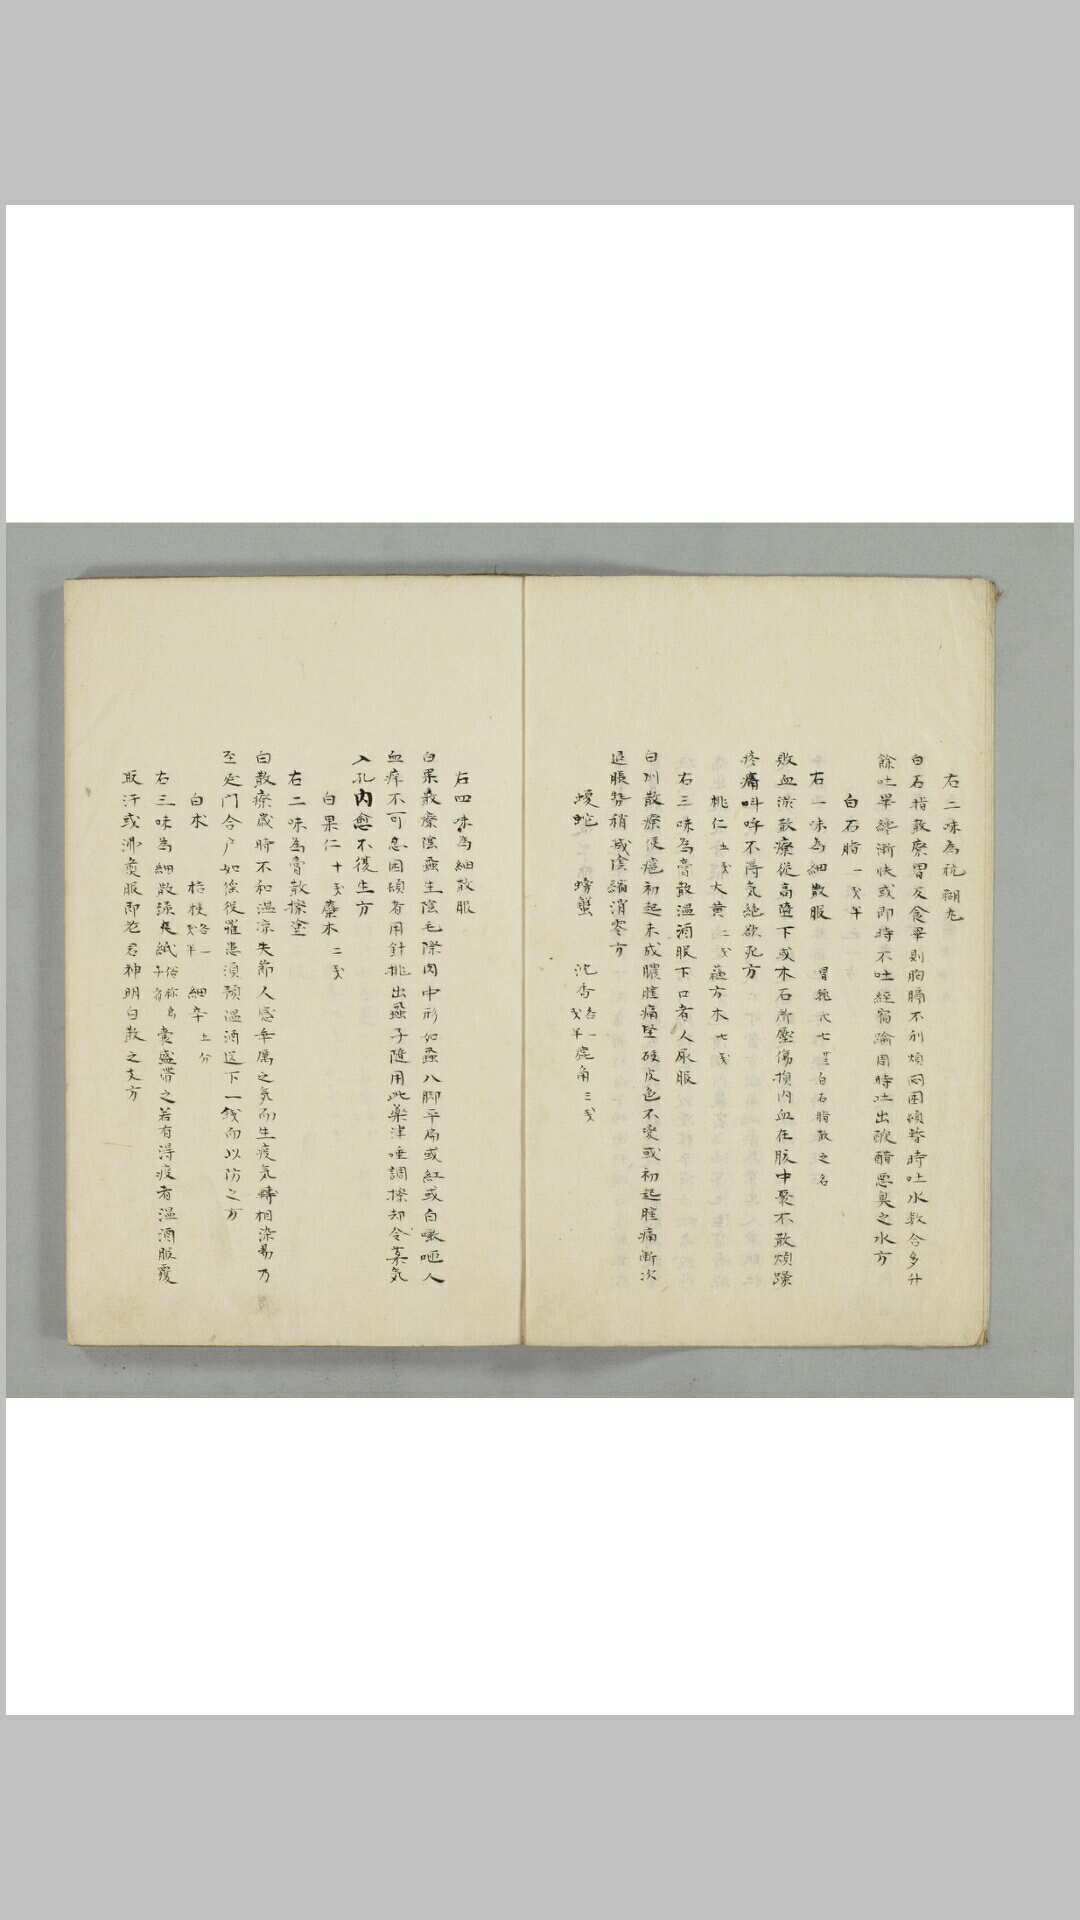 右二味為糊丸
白石脂散療胃反食畢則胸膈不利煩悶困頓瞀時吐水數合多升
餘吐畢漸快或即時不吐經宿踰周時吐出酸醋悪臭之水方
白石脂 一戔半
右一味為細散服 白石脂散之名
敗血散療從高墮下或木石所壓傷損内血在肢中聚不散煩躁
疼痛叫呼不得気絶欲死方
桃仁 大黄 二戔 蘓方木 七戔
右三味為膏散温酒服下口者人尿服
白州散療便癰初起未成膿腫痛堅硬皮色不変或初起腫痛漸次
延脹勢稍減陰縮消零方
蝮蛇 螃蟹 沈香 各一戔半 鹿角 三戔
右四味為細散服
白果散療陰蝨生陰毛際肉中形如蝨八脚平扁或紅或白嗽咂人
血痒不可忍困頓者用針挑出蝨子隨用此薬津唾調搽却令薬気
入孔内愈不復生方
白果仁 十戔 藜木 二戔
右二味為膏散搽塗
白散療歳時不和温凉失節人感乖厲之気而生疫気轉相染易乃
至延門合戸如徭役罹患須預温酒送下一銭而以防之方
白朮 桔梗 各一戔半 細辛 五分
右三味為細散 紙 俗称 嚢盛帶之若有得疫者温酒服覆
取汗或沸煮服即 君神明白散之支方